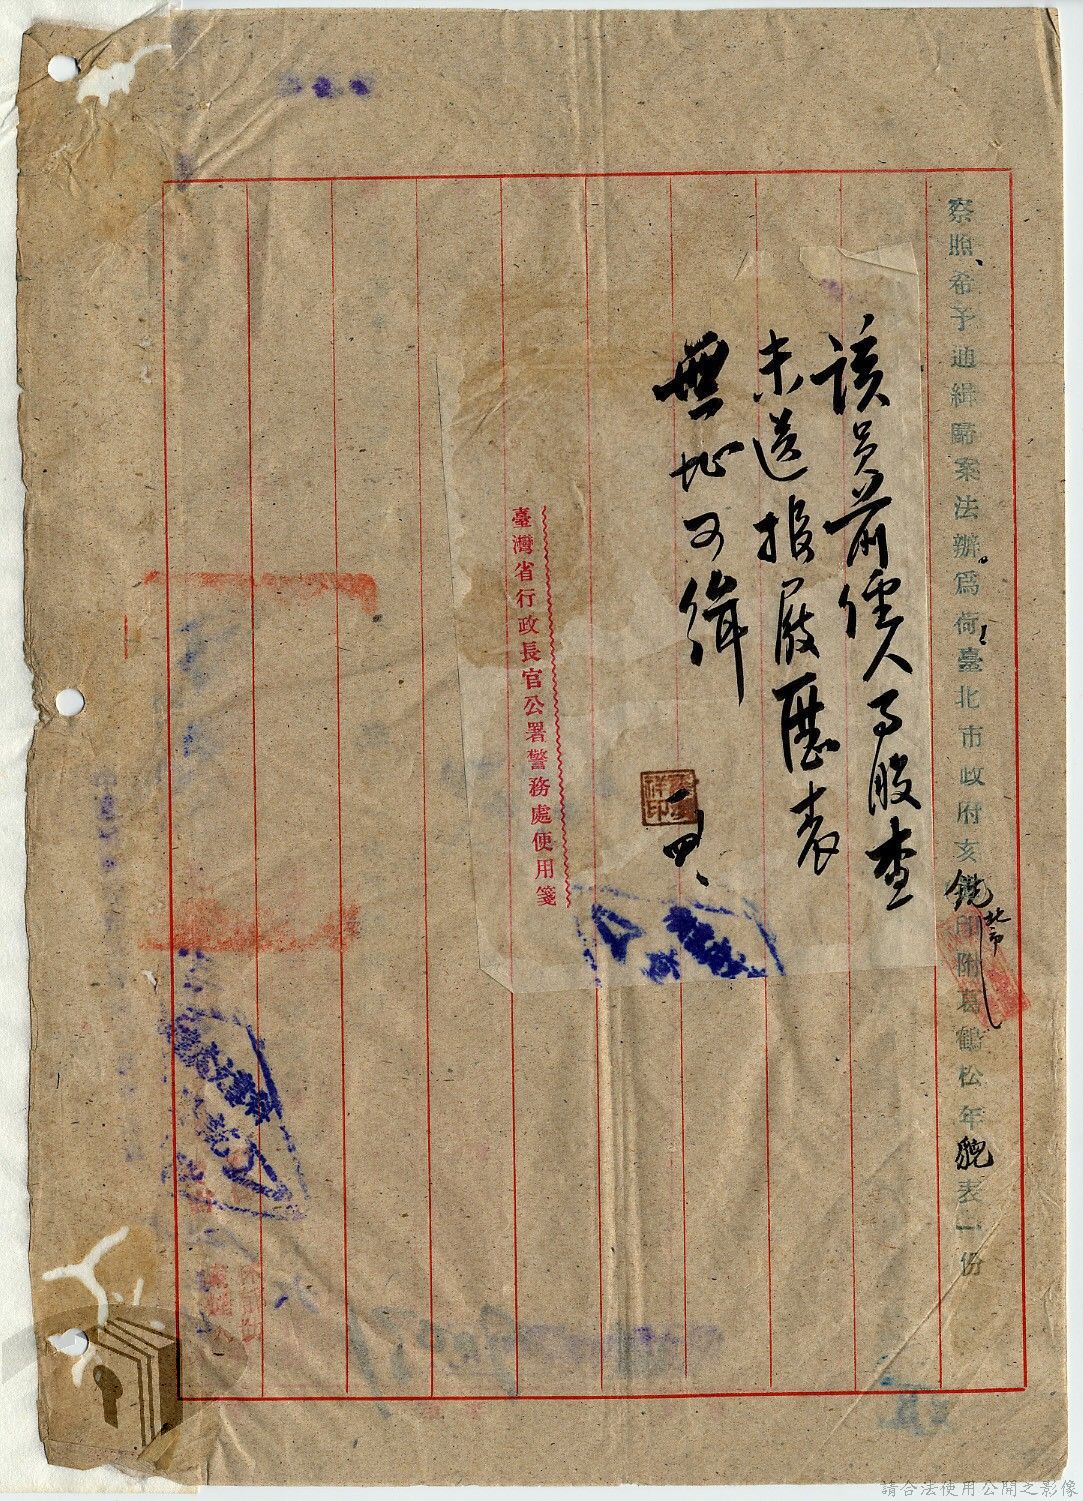 察照、希予通緝歸案法辦。爲荷！臺北市政府亥銑北市印附葛鶴松年貌表一份
該員前僅人事股查
未送報履歷表
無地可緝
一、四、
臺灣省行政長官公署警務處便用箋
請合法使用公開之影像